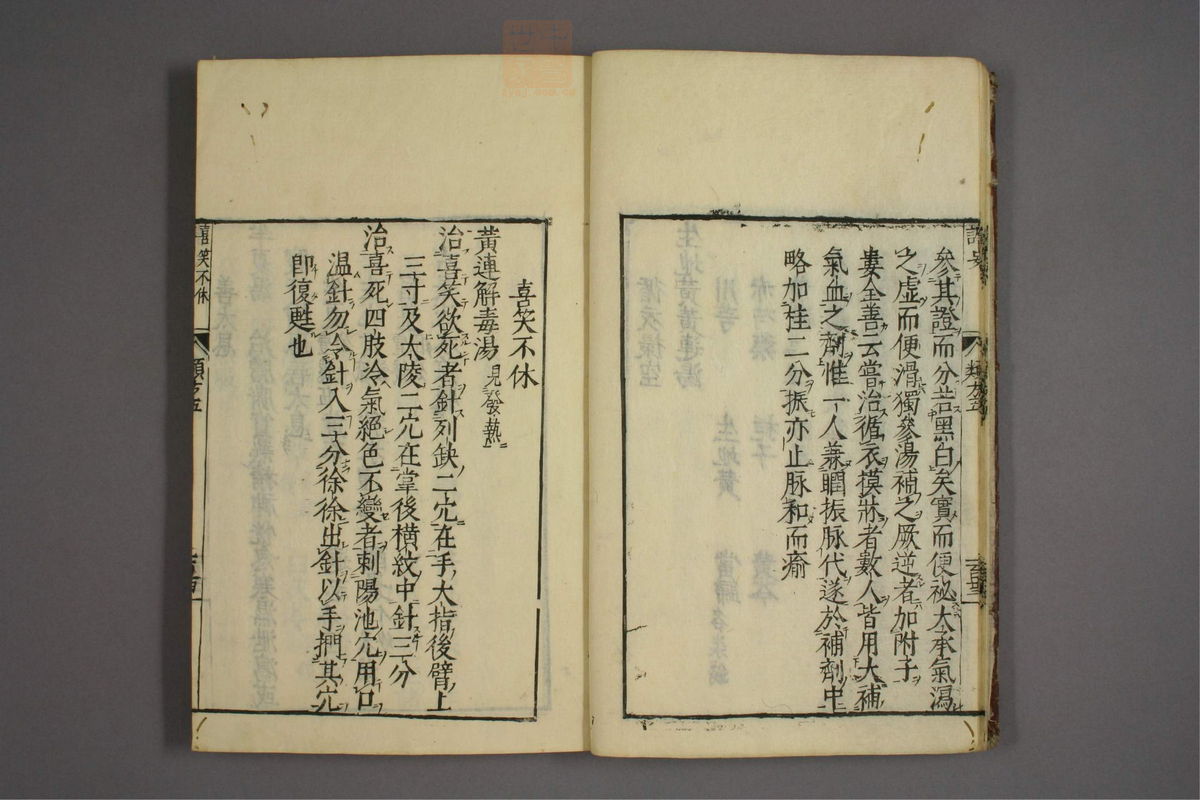 參其證而分若黑白矣實而便祕大承氣瀉
之虛而便滑獨參湯補之厥逆者加附子
婁全善云嘗治循衣摸牀者數人皆用大補
氣血之劑惟一人兼瞤振脉代遂於補劑中
略加桂二分振亦止脉和而瘉
喜笑不休
黃連解毒湯 見發熱
治喜笑欲死者針列缺二穴在手大指後臂上
三寸及太陵二穴在掌後橫紋中針三分
治喜死四肢冷氣絕色不變者刺陽池穴用口
温針勿冷針入三分徐徐出針以手捫其穴
即復甦也
喜笑不休
類方五